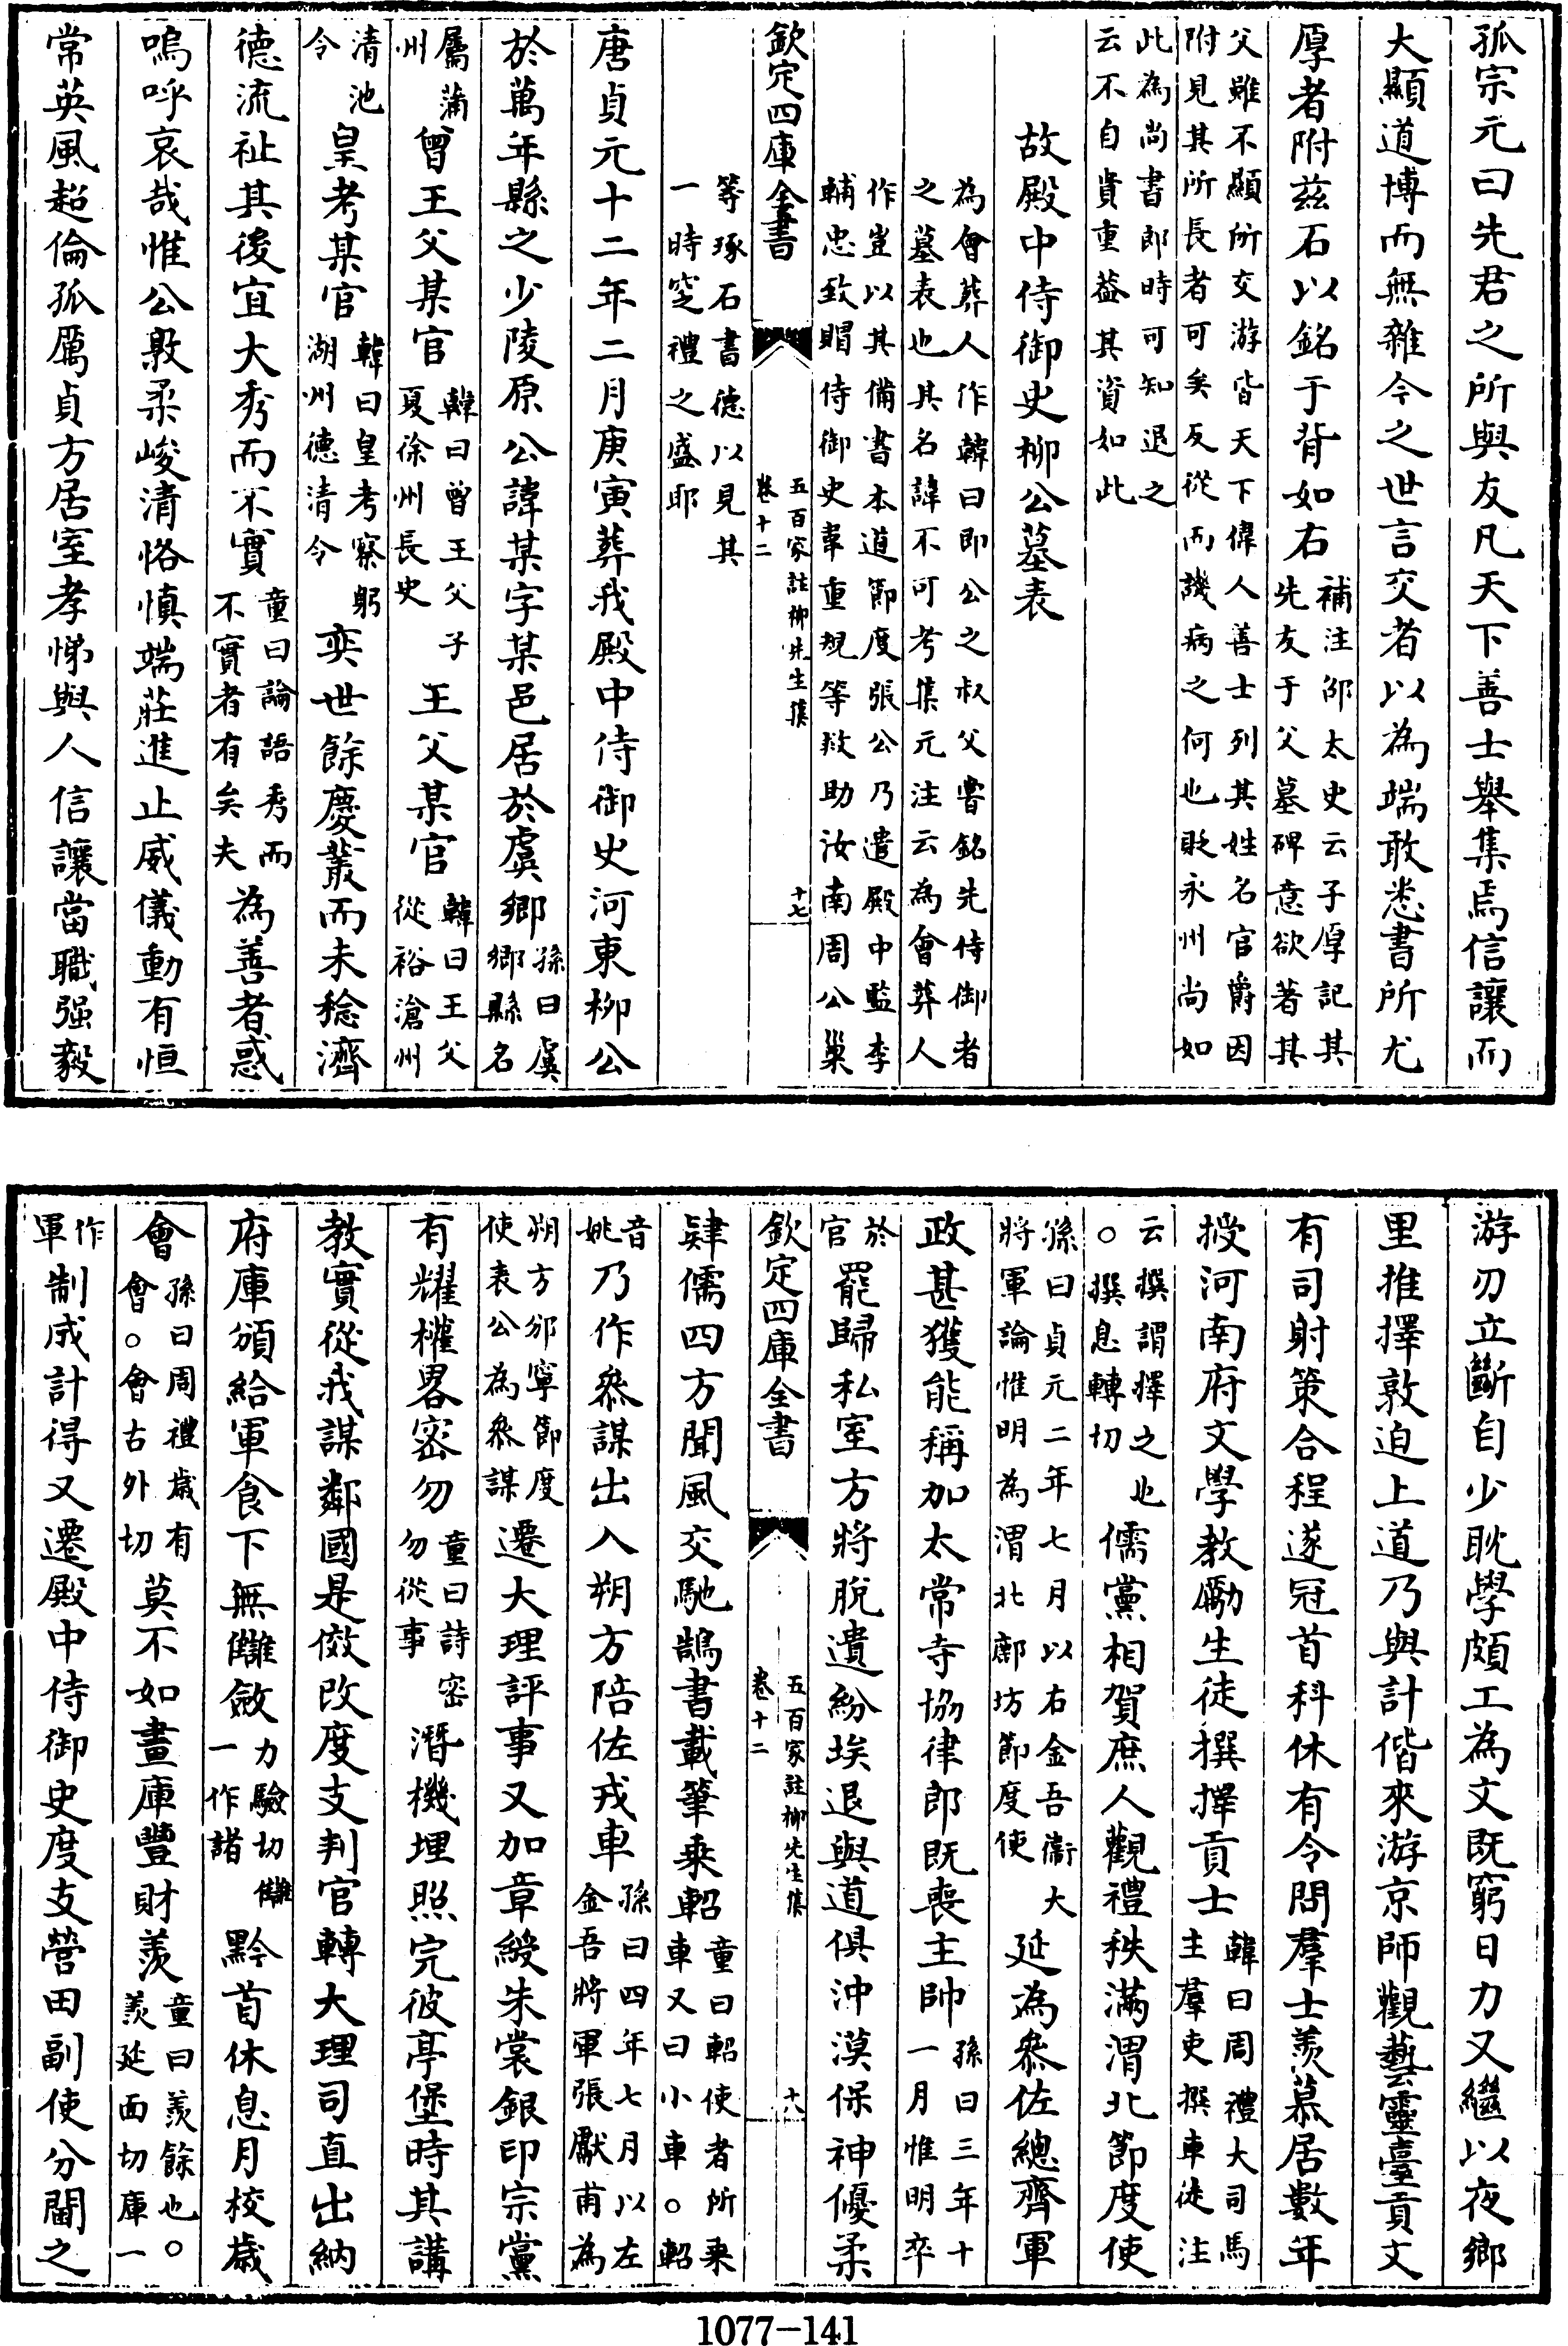 孤宗元曰先君之所與友凡天下善士舉集焉信讓而
大顯道博而無雜今之世言交者以為端敢悉書所尤
厚者附兹石以銘于背如右補注邵太史云子厚記其先友于父墓碑意欲著其
父雖不顯所交游皆天下偉人善士列其姓名官爵因附見其所長者可矣反從而譏病之何也貶永州尚如
此為尚書郎時可知退之云不自貴重葢其資如此
故殿中侍御史柳公墓表
為會葬人作韓曰即公之叔父嘗銘先侍御者之墓表也其名諱不可考集元注云為會葬人
作豈以其備書本道節度張公乃遣殿中監李輔忠致賵侍御史韋重規等救助汝南周公巢
欽定四庫全書 五百家註柳先生集卷十二 十七
等琢石書德以見其一時窆禮之盛耶
唐貞元十二年二月庚寅葬我殿中侍御史河東柳公
於萬年縣之少陵原公諱某字某邑居於虞鄉孫曰虞鄉縣名
屬蒲州曾王父某官韓曰曾王父子夏徐州長史王父某官韓曰王父從裕滄州
清池令皇考某官韓曰皇考察躬湖州德清令奕世餘慶叢而未稔濟
德流祉其後宜大秀而不實童曰論語秀而不實者有矣夫為善者惑
嗚呼哀哉惟公敦柔峻清恪慎端莊進止威儀動有恒
常英風超倫孤厲貞方居室孝悌與人信讓當職强毅
游刃立斷自少耽學頗工為文既窮日力又繼以夜鄉
里推擇敦迫上道乃與計偕來游京師觀藝靈臺貢文
有司射策合程遂冠首科休有令問羣士羨慕居數年
授河南府文學教勵生徒撰擇貢士韓曰周禮大司馬主羣吏撰車徒注
云撰謂擇之也。撰息轉切儒黨相賀庶人觀禮秩滿渭北節度使
孫曰貞元二年七月以右金吾衞大將軍論惟明為渭北鄜坊節度使延為叅佐總齊軍
政甚獲能稱加太常寺協律郎既喪主帥孫曰三年十一月惟明卒
於官罷歸私室方將脫遺紛埃退與道俱沖漠保神優柔
欽定四庫全書 五百家註柳先生集卷十二 十八
肄儒四方聞風交馳鵠書載筆乗軺童曰軺使者所乗車又曰小車。軺
音姚乃作叅謀出入朔方陪佐戎車孫曰四年七月以左金吾將軍張獻甫為
朔方邠寧節度使表公為叅謀遷大理評事又加章綬朱裳銀印宗黨
有耀權畧密勿童曰詩密勿從事潛機埋照完彼亭堡時其講
教實從我謀鄰國是傚改度支判官轉大理司直出納
府庫頒給軍食下無讎斂力驗切讎一作諸黔首休息月校歲
會孫曰周禮歲有會。會古外切莫不如畫庫豐財羨童曰羨餘也。羨延面切庫一
作軍制成計得又遷殿中侍御史度支營田副使分閫之
1077-141